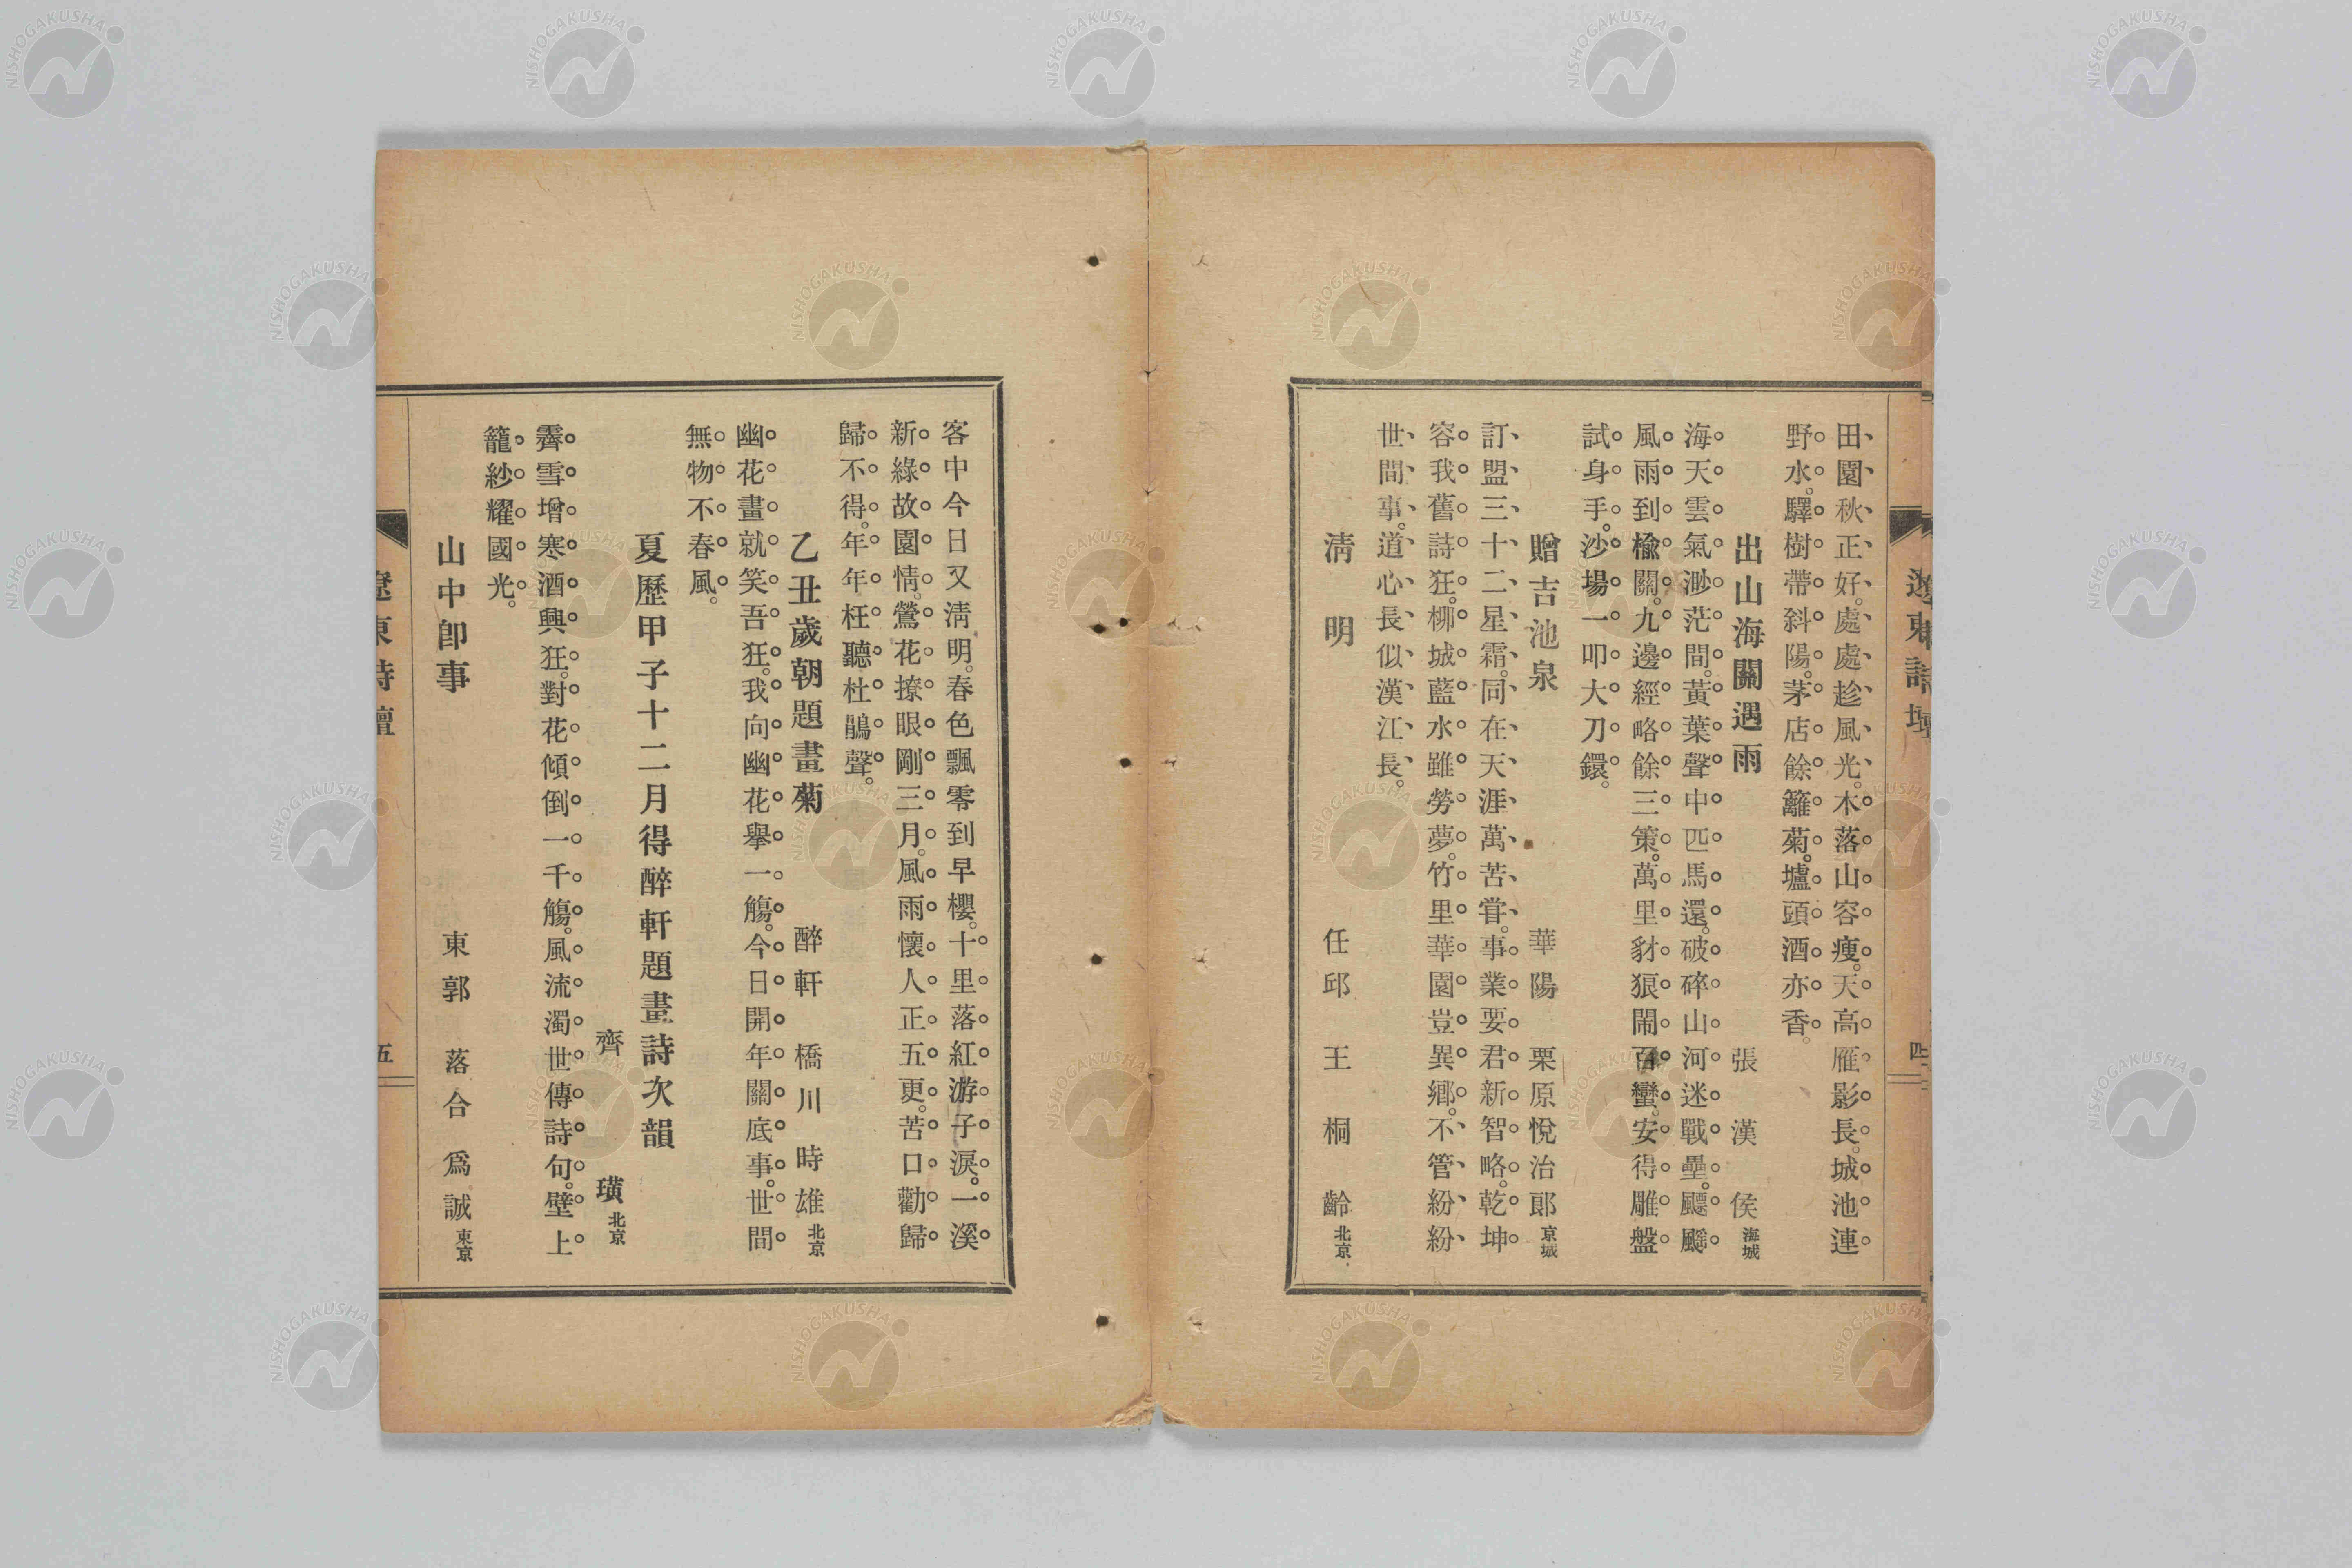 遼東詩壇
四
田園秋正好。處處趁風光。木落山容瘦。天高雁影長。城池連
野水。驛樹帶斜陽。茅店餘籬菊。壚頭酒亦香。
出山海關遇雨 張漢侯 海城
海天雲氣渺茫間。黃葉聲中匹馬還。破碎山河迷戰壘。飅飅
風雨到楡關。九邊經略餘三策。萬里豺狼鬧百蠻。安得雕盤
試身手。沙場一叩大刀鐶。
贈吉池泉 華陽 栗原悅治郎 京城
訂盟三十二星霜。同在天涯萬苦甞。事業要君新智略。乾坤
容我舊詩狂。柳城藍水雖勞夢。竹里華園豈異鄉。不管紛紛
世間事。道心長似漢江長。
淸明 任邱 王桐齡 北京
客中今日又淸明。春色飄零到早櫻。十里落紅游子淚。一溪
新綠故園情。鶯花撩眼剛三月。風雨懷人正五更。苦口勸歸
歸不得。年年枉聽杜鵑聲。
乙丑歲朝題畫菊 醉軒 橋川時雄 北京
幽花畫就笑吾狂。我向幽花擧一觴。今日開年關底事。世間
無物不春風。
夏歷甲子十二月得醉軒題畫詩次韻
齊璜 北京
霽雪增寒酒興狂。對花傾倒一千觴。風流濁世傳詩句。壁上
籠紗耀國光。
山中卽事 東郭 落合爲誠 東京
遼東詩壇
五
NISHOGAKUSHA